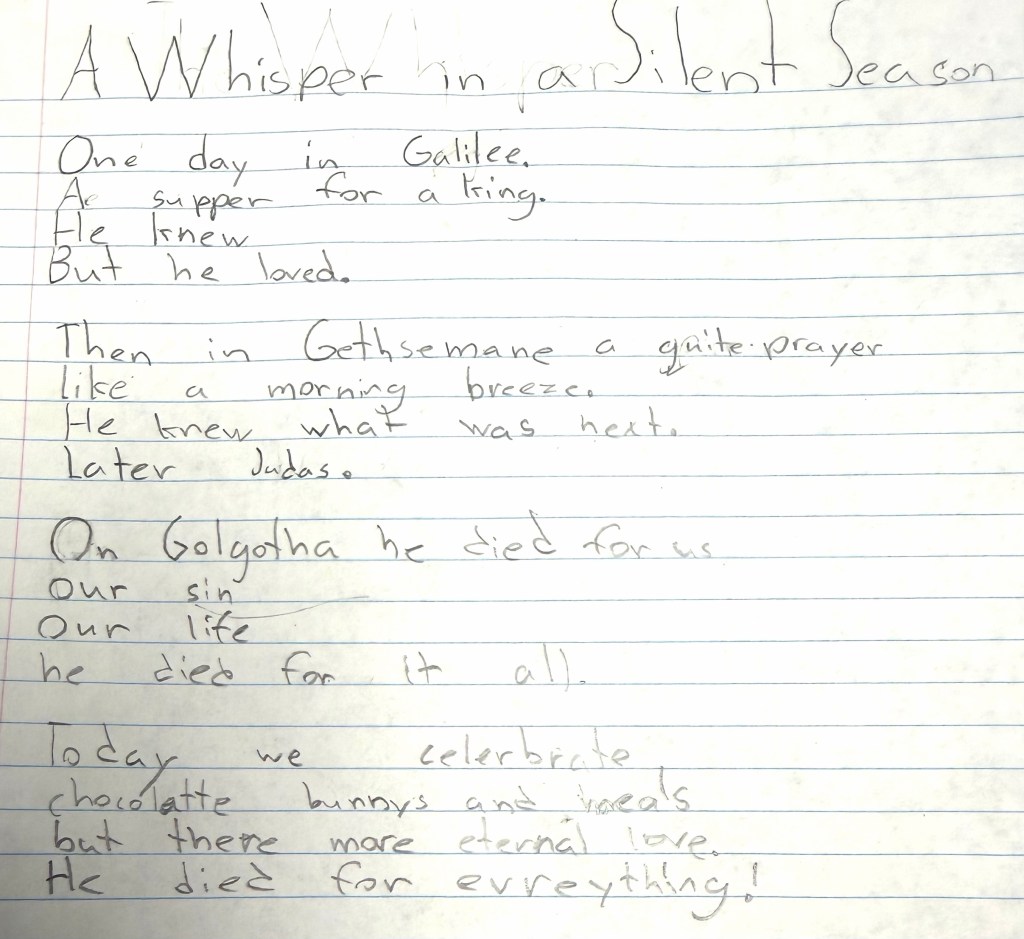 A Whisper in a Silent Season
One day in Galilee.
A supper for a king.
He knew
But he loved.
Then in Gethsemane a quite prayer
like a morning breeze.
He knew what was next.
Later Judas.
On Golgotha he died for us
Our sin
Our life
he died for it all.
Today we celerbrate
chocolatte bunnys and
but there more eternal love.
He died for evreything!